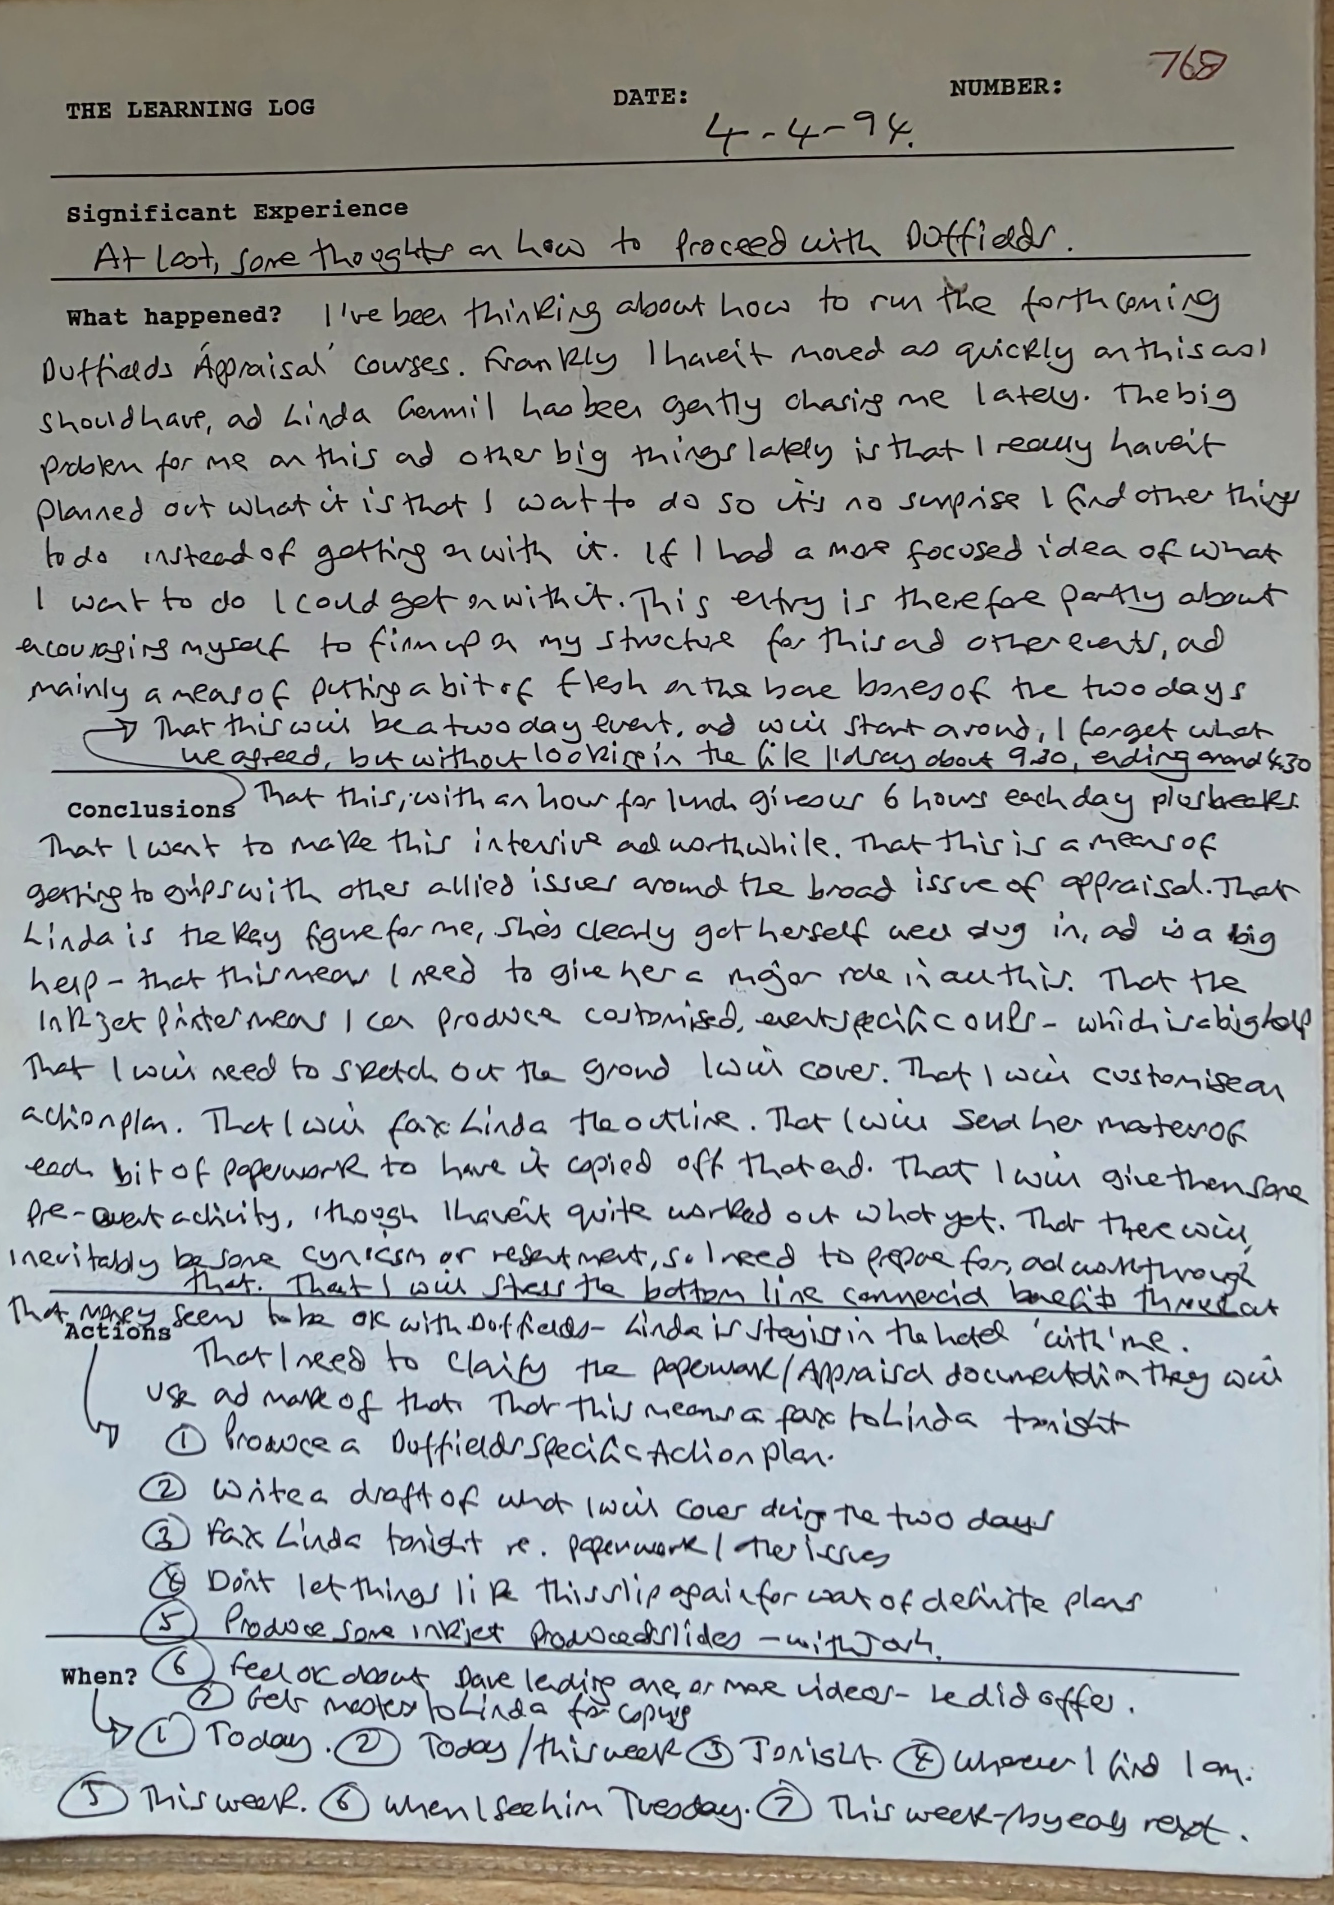 768
THE LEARNING LOG DATE: NUMBER:
4-4-94.
Significant Experience
At last, some thoughts on how to proceed with Duffields.
What happened? I've been thinking about how to run the forthcoming
Duffields 'Appraisal' courses. Frankly I haven't moved as quickly on this as I
should have, ad Linda has been gently chasing me lately. The big
problem for me on this ad other big things lately is that I really haven't
planned out what it is that I want to do so it's no surprise I find other things
to do instead of getting on with it. If I had a more focused idea of what
I want to do I could get on with it. This entry is therefore partly about
encouraging myself to firm up on my structure for this ad other events, ad
mainly a means of putting a bit of flesh on the bare bones of the two days
→ That this will be a two day event, ad will start around, I forget what
we agreed, but without looking in the file I'd say about 9.30, ending around 4.30
Conclusions That this, with an hour for lunch gives us 6 hours each day plus breaks.
That I want to make this intensive ad worthwhile. That this is a means of
getting to grips with other allied issues around the broad issue of appraisal. That
Linda is the key figure for me, she's clearly got herself well dug in, ad is a big
help - that this means I need to give her a major role in all this. That the
Inkjet printer means I can produce customised, event specific OHPs - which is a big help
That I will need to sketch out the ground I will cover. That I will customise an
action plan. That I will fax Linda the outline. That I will send her masters of
each bit of paperwork to have it copied off that end. That I will give them some
pre-event activity, though I haven't quite worked out what yet. That there will
inevitably be some cynicism or resentment, so I need to prepare for, ad work through
that. That I will stress the bottom line commercial benefits throughout
That money seems to be OK with Duffields - Linda is staying in the hotel 'with' me.
Actions
That I need to clarify the paperwork/Appraisal documentation they will
use ad make of that. That this means a fax to Linda tonight
① Produce a Duffields specific Action plan.
② Write a draft of what I will cover during the two days
③ Fax Linda tonight re. paperwork / other issues
④ Don't let things like this slip again for want of definite plans
⑤ Produce some inkjet produced slides - with Josh.
When? ⑥ Feel ok about Dave leading one, or more videos - he did offer.
⑦ Get masters to Linda for copying
① Today. ② Today/this week ③ Tonight. ④ Wherever I find I am.
⑤ This week. ⑥ When I see him Tuesday. ⑦ This week-/by early next.